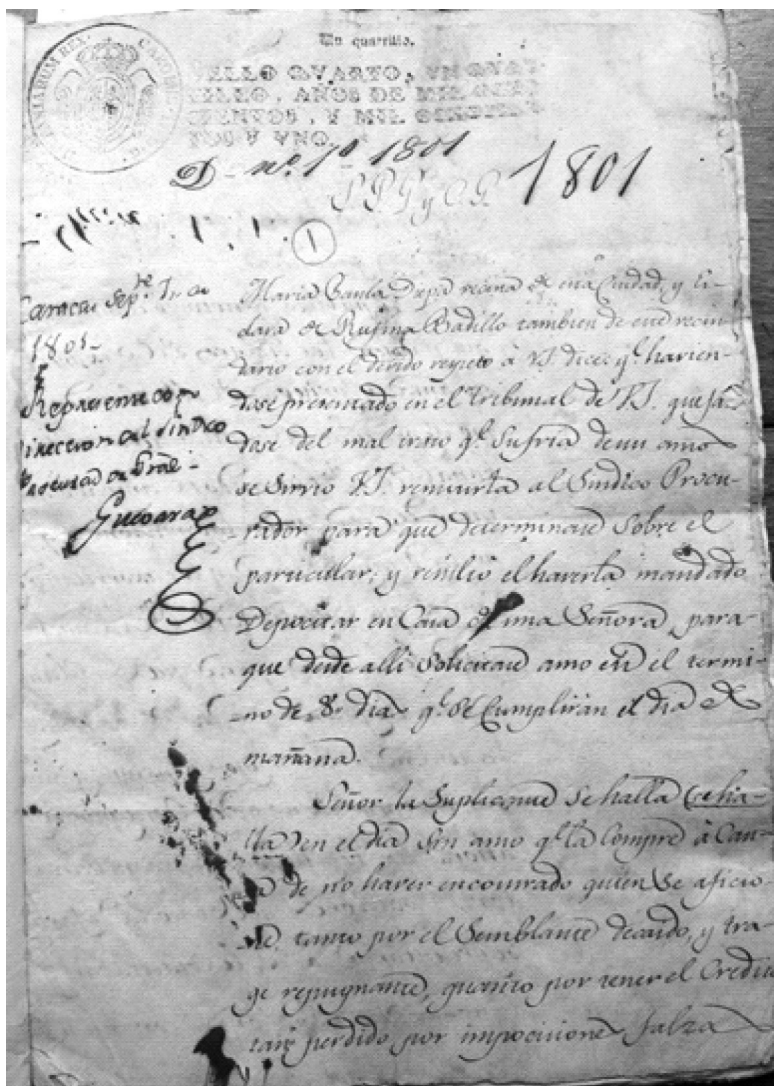 Un quartillo.
SELLO QVARTO, VN QVAR-
TILLO, AÑOS DE MIL OCHO-
CIENTOS, Y MIL OCHOCIEN-
TOS Y VNO.
CAROLUS
NIARUM REX
D nº. 10 1801
1801
1
Caracas Sepre.
1801-
Represente
direccion del Sindico
Procurad Gral-
Guevara
Maria Paula vecina de esta Ciudad, y Es-
clava de Rufina Badillo tambien de este vecin-
dario con el devido respeto à VS. dice: qe. havien-
dose presentado en el tribunal de VS. quejan-
dose del mal trato qe. Sufria de su amo
se Sirvio VS. remitirla al Sindico Procu-
rador para que determinase Sobre el
particular; y resultó el haverla mandado
Depocitar en Casa de una Señora, para-
que desde alli Solicitase amo en el termi-
no de 8 dias qe. se Cumplirán el dia de
mañana.
Señor la Suplicante se halla
en el dia Sin amo qe. la Compre à Cau-
sa de no haver encontrado quien se aficio-
ne, tanto por el Semblante decaido, y tra-
ge repugnante, quanto por tener el Credito
tan perdido por impociciones falzas